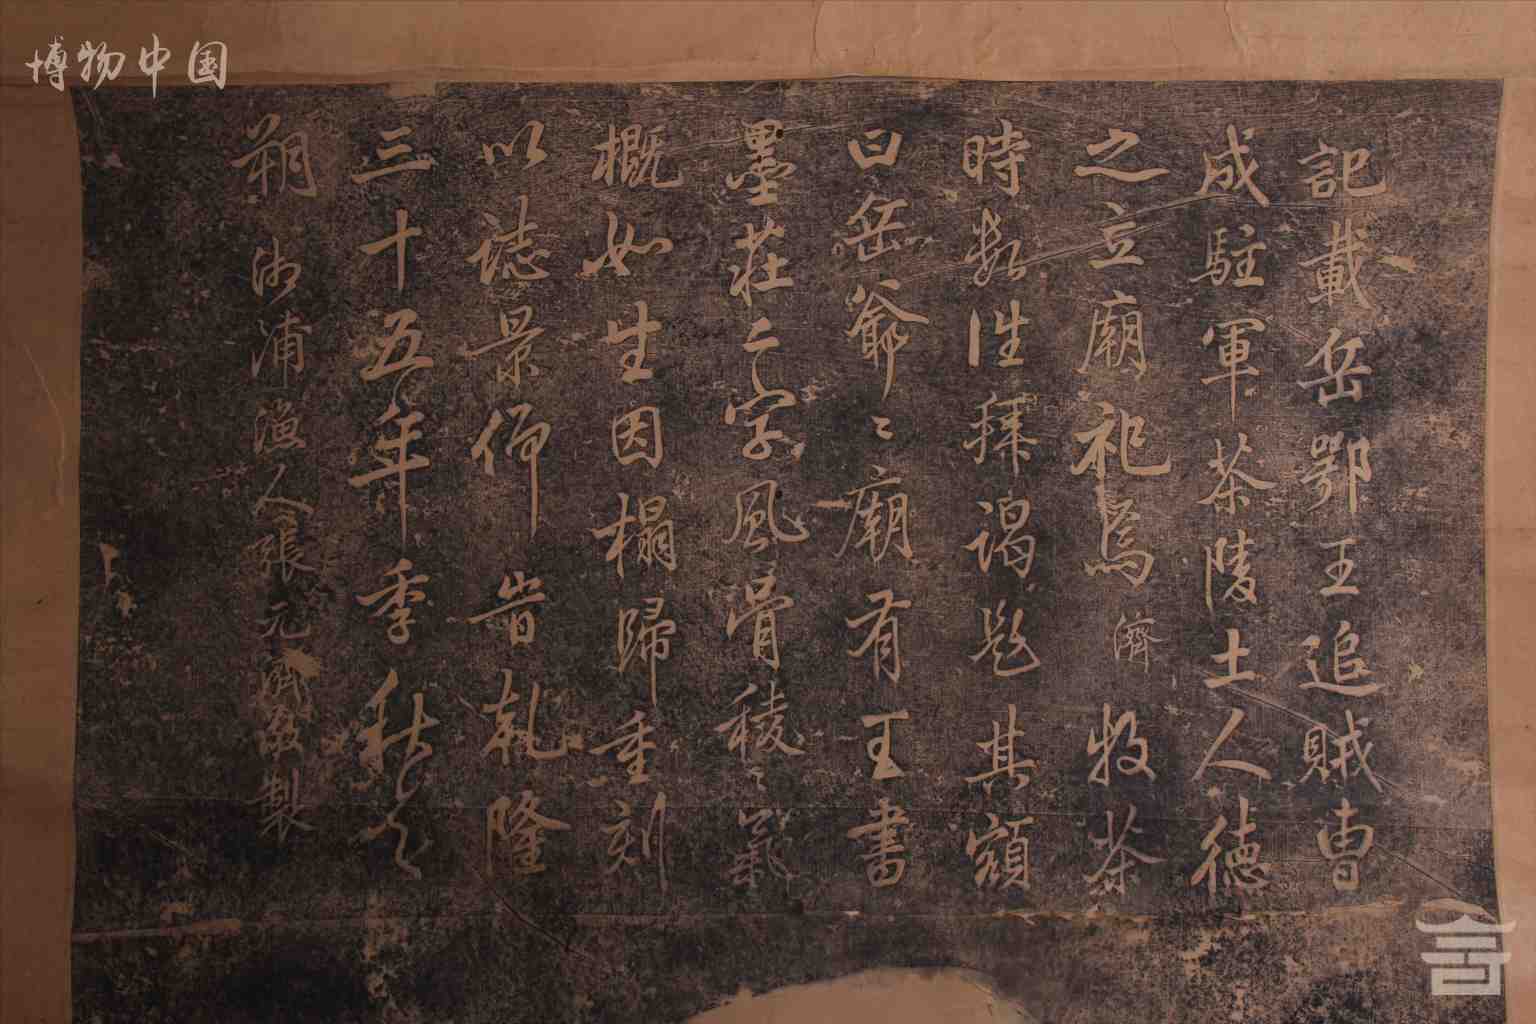 博物中国
記載岳鄂王追賊曹
成駐軍茶陵土人德
之立廟祀焉濟牧茶
時數往拜謁題其額
曰岳爺〻廟有王書
墨莊二字風骨稜〻氣
概如生因榻歸重刻
以誌景仰旹乾隆
三十五年季秋之
朔 浦漁人張元濟製